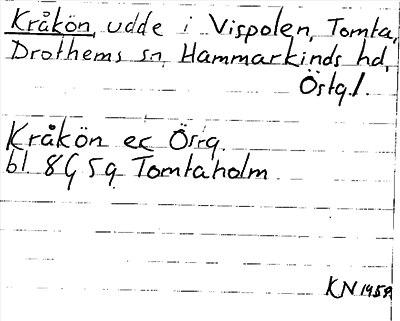 Kråkön, udde i Vispolen, Tomta,
Drothems sn, Hammarkinds hd,
Östg.l.
Kråkön ec Östg.
bl. 8G 5g Tomtaholm
KN 1959